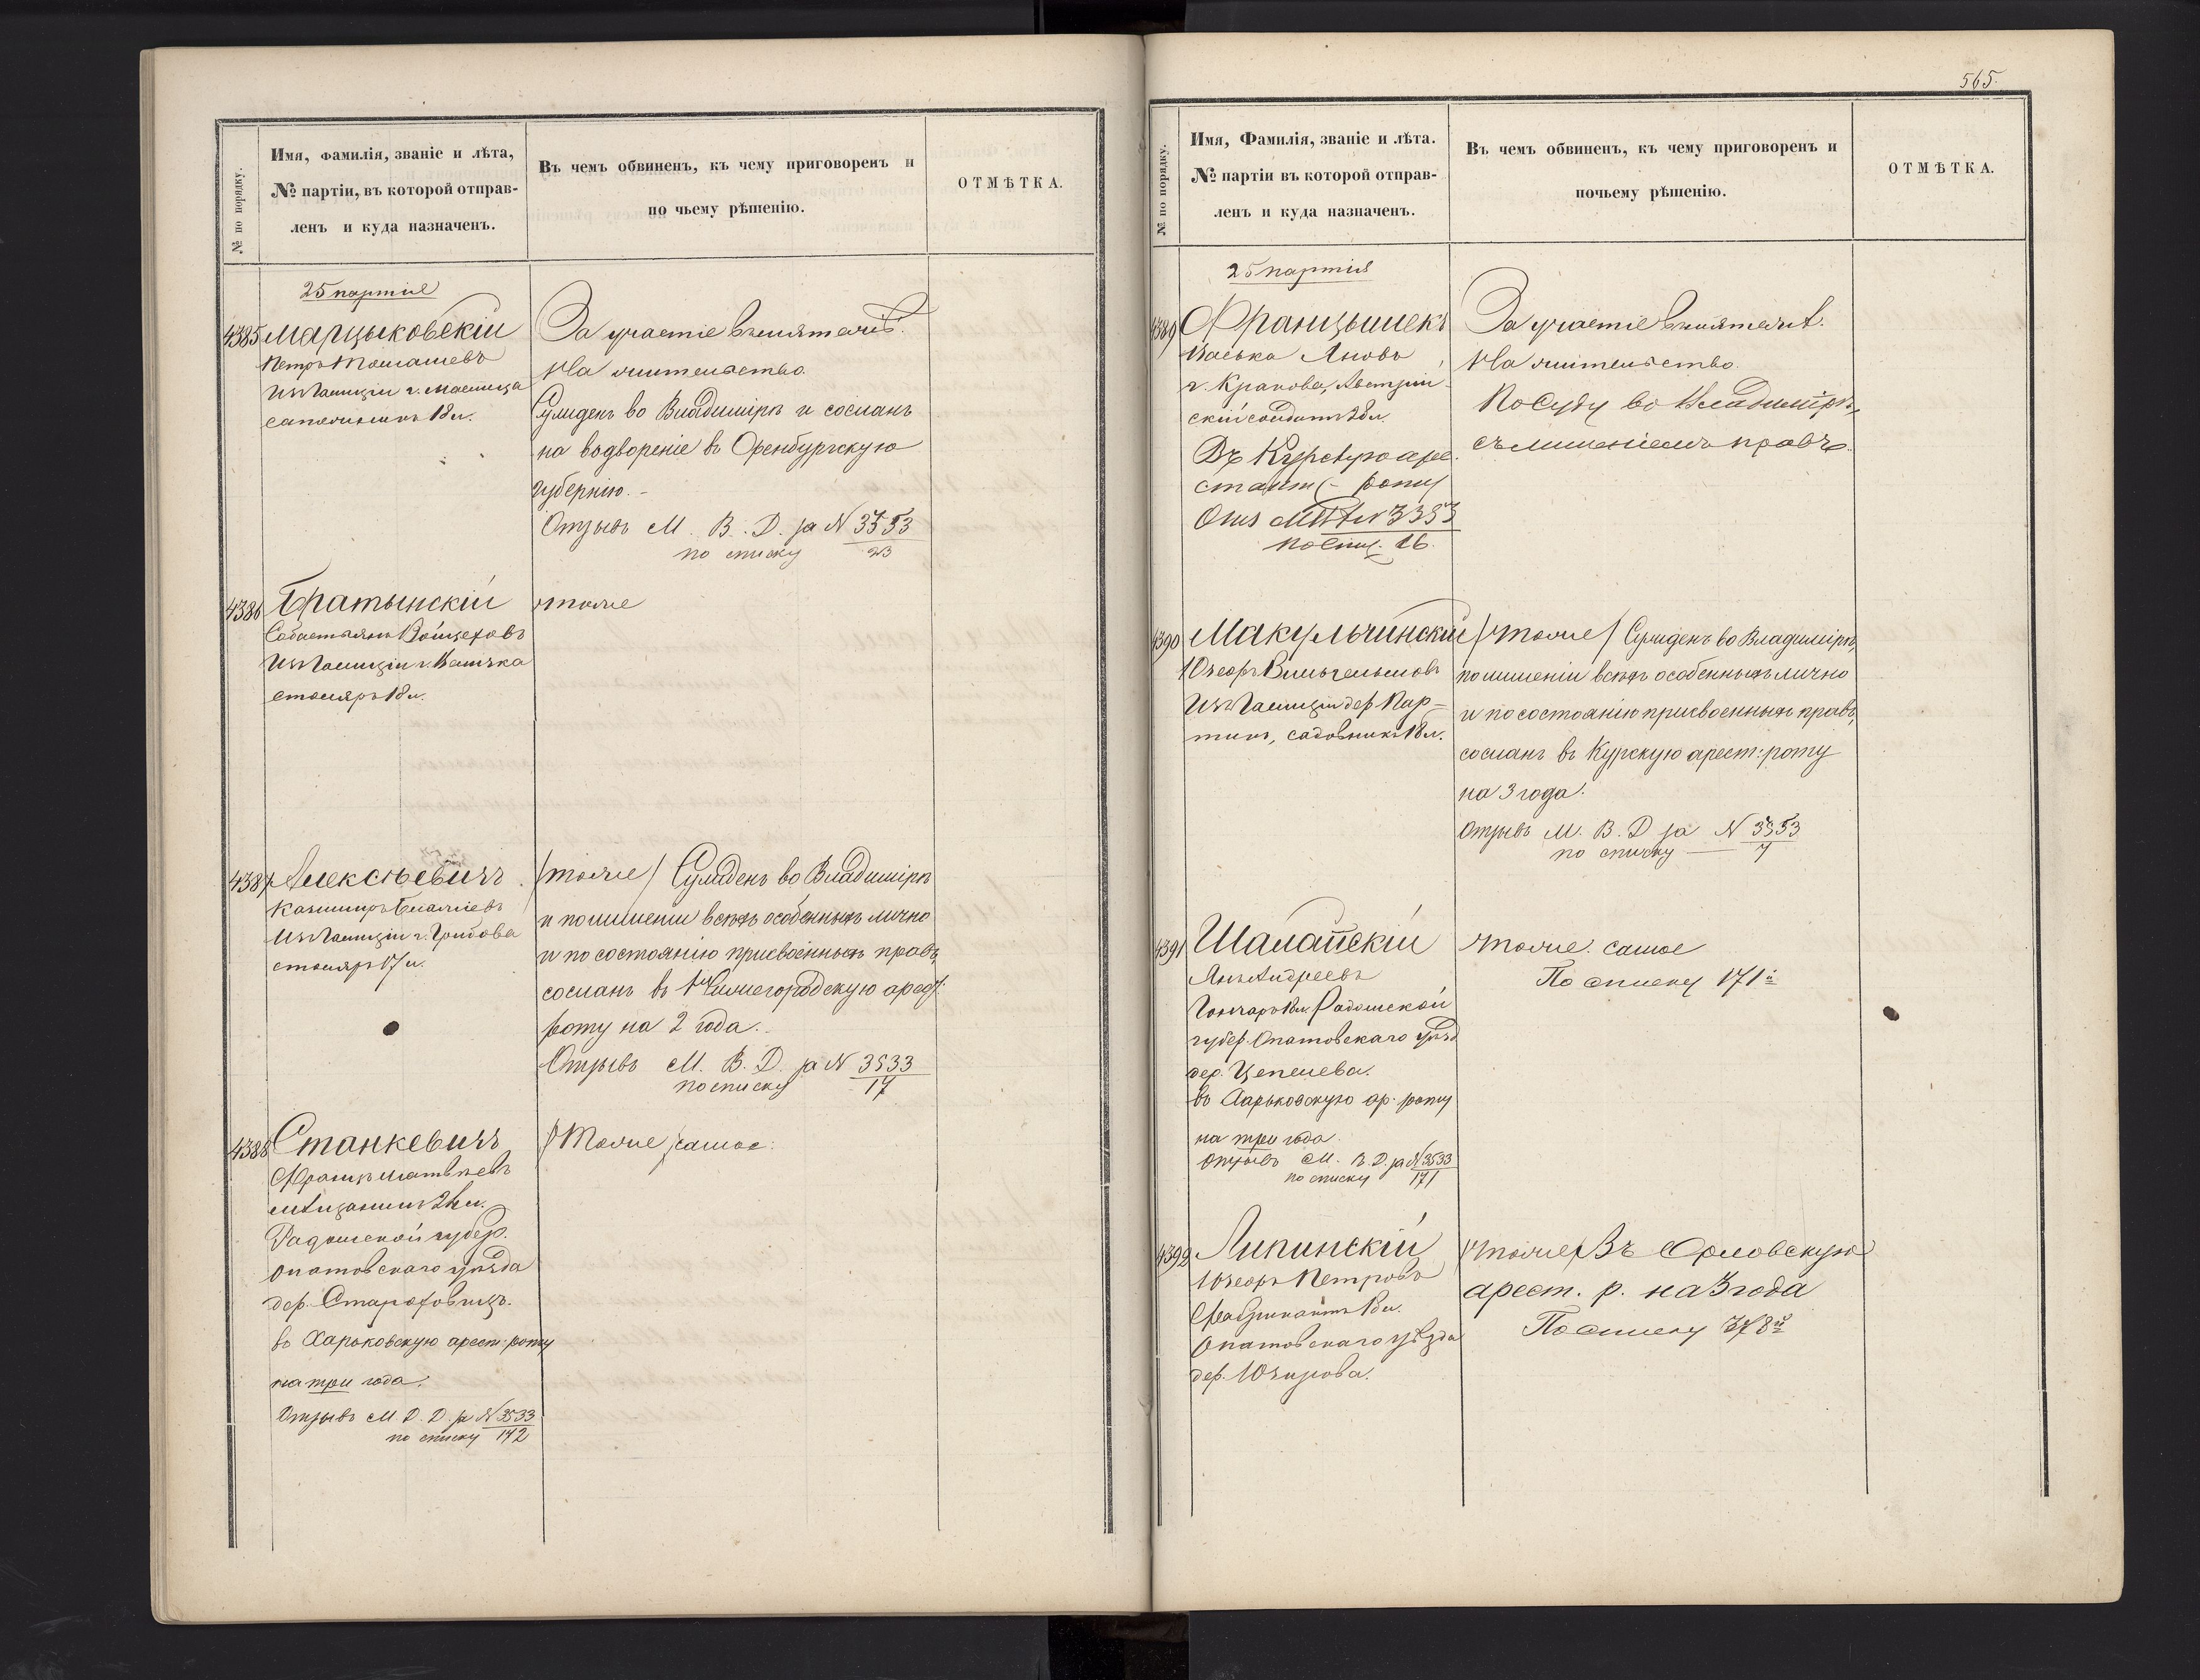 № по порядку.
Имя, фамилія, званіе и лѣта,
№ партіи, въ которой отправ-
ленъ и куда назначенъ.
Въ чемъ обвиненъ, къ чему приговоренъ и
по чьему рѣшенію.
ОТМѢТКА.
25 партія
4385 Марцыковскій
Петръ Томашевъ
Изъ Галиціи г.
сапожникъ 18 л.
За участіе въ мятежѣ.
На жительство.
Сужденъ во Владимірѣ и сосланъ
на водвореніе въ Оренбургскую
губернію.
Отзывъ М. В. Д. за N 3553
по списку 23
4386 Братынскій
Собастьянъ Войцеховъ
Изъ Галиціи г.
столяръ 18 л.
тоже
4387 Алексѣевичъ
Казимиръ
Изъ Галиціи г. Грибова
столяръ 17 л.
/тоже/ Сужденъ во Владимірѣ
и по лишеніи всѣхъ особенныхъ лично
и по состоянію присвоенныхъ правъ,
сосланъ въ Нижегородскую арест:
роту на 2 года.
Отзывъ М. В. Д. за N 3533
по списку 17
4388 Станкевичъ
Францъ Матвѣевъ
мѣщанинъ л.
Радомской губер.
Опатовскаго уѣзда
дер.
въ Харьковскую арест: роту
на три года.
Отзывъ М. В. Д. за N 3533
по списку 172
/Тоже/ самое.
565.
№ по порядку.
Имя, Фамилія, званіе и лѣта.
№ партіи въ которой отправ-
ленъ и куда назначенъ.
Въ чемъ обвиненъ, къ чему приговоренъ и
почьему рѣшенію.
ОТМѢТКА.
25 партія
4389 Францышекъ
Васька Яновъ
г. Кракова, Австрій-
скій солдатъ л.
Въ Курскую аре-
стант. роту
3353
по спис. 16.
За участіе въ мятежѣ.
На жительство.
По суду во Владимірѣ,
съ лишеніемъ правъ.
4390 Макульчинскій
Юзефъ Вильгельмовъ
Изъ Галиціи дер. Пар-
тинъ, садовникъ 18 л.
/тоже/ Сужденъ во Владимірѣ,
по лишеніи всѣхъ особенныхъ лично
и по состоянію присвоенныхъ правъ,
сосланъ въ Курскую арест: роту
на 3 года.
Отзывъ М. В. Д за N 3553
по списку — 7
4391 Шалапскій
Янъ Андреевъ
Гончаръ 18 л. Радомской
губер. Опатовскаго уѣзд
дер. Цепелева.
въ Харьковскую ар: роту
на три года.
Отзывъ М. В. Д. за N 3533
по списку 171
тоже самое
По списку 171й
4392 Липинскій
Юзефъ Петровъ
Фабрикантъ 18 л.
Опатовскаго уѣзда
дер.
/тоже/ Въ Орловскую
арест. р. на 3 года
По списку